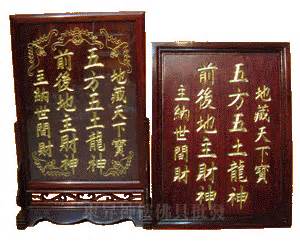 地藏天下寶
五方五土龍神
前後地主財神
主納世間財
地藏天下寶
五方五土龍神
前後地主財神
主納世間財
佛具批發